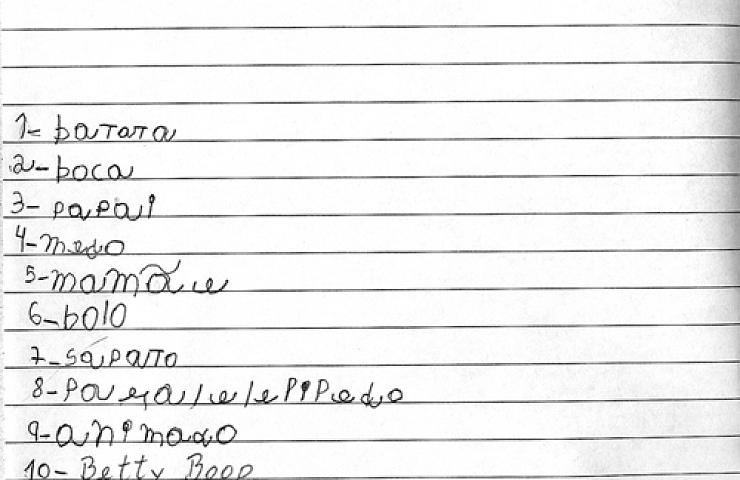 1- batata
2- boca
3- papai
4- medo
5- mamãe
6- bolo
7- sapato
8- paralelepipedo
9- animado
10- Betty Boop